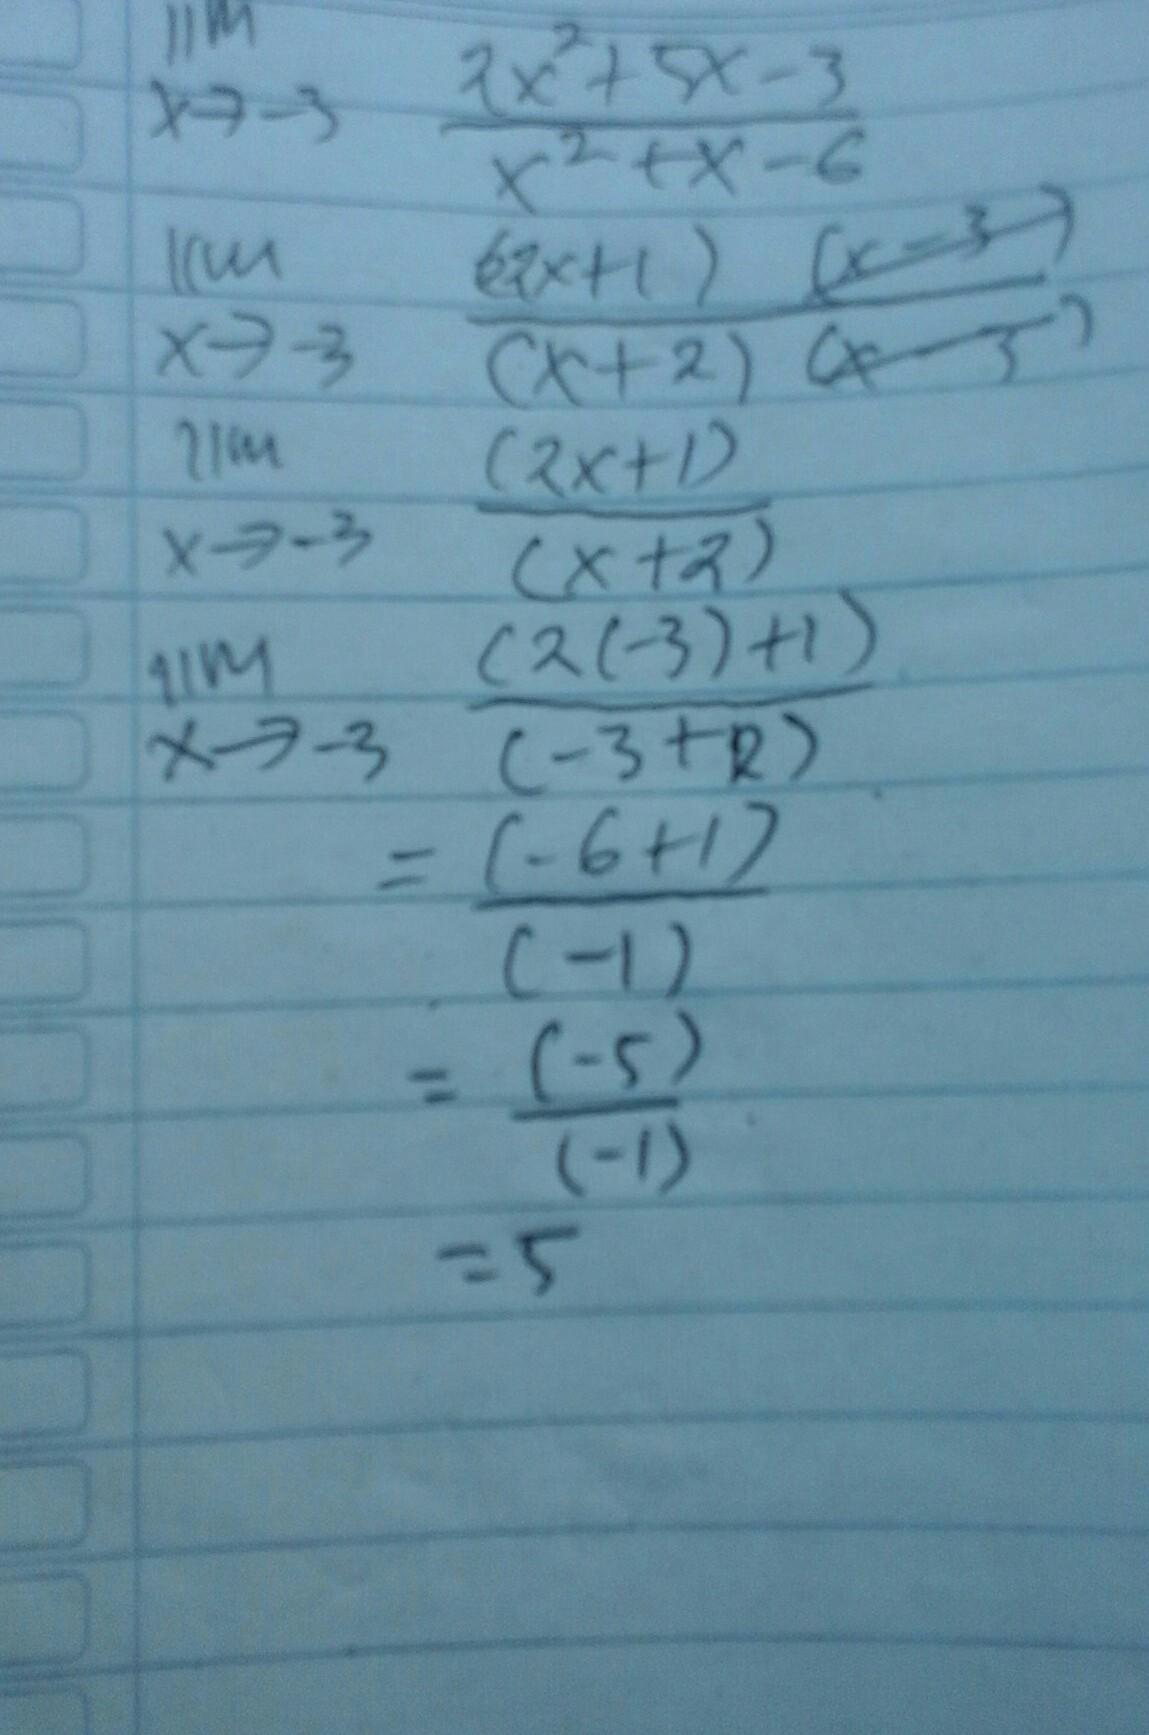 lim
x→-3
2x²+5x-3
x²+x-6
lim
x→-3
(2x+1) (x-3)
(x+2) (x-3)
lim
x→-3
(2x+1)
(x+2)
lim
x→-3
(2(-3)+1)
(-3+2)
= (-6+1)
(-1)
= (-5)
(-1)
=5